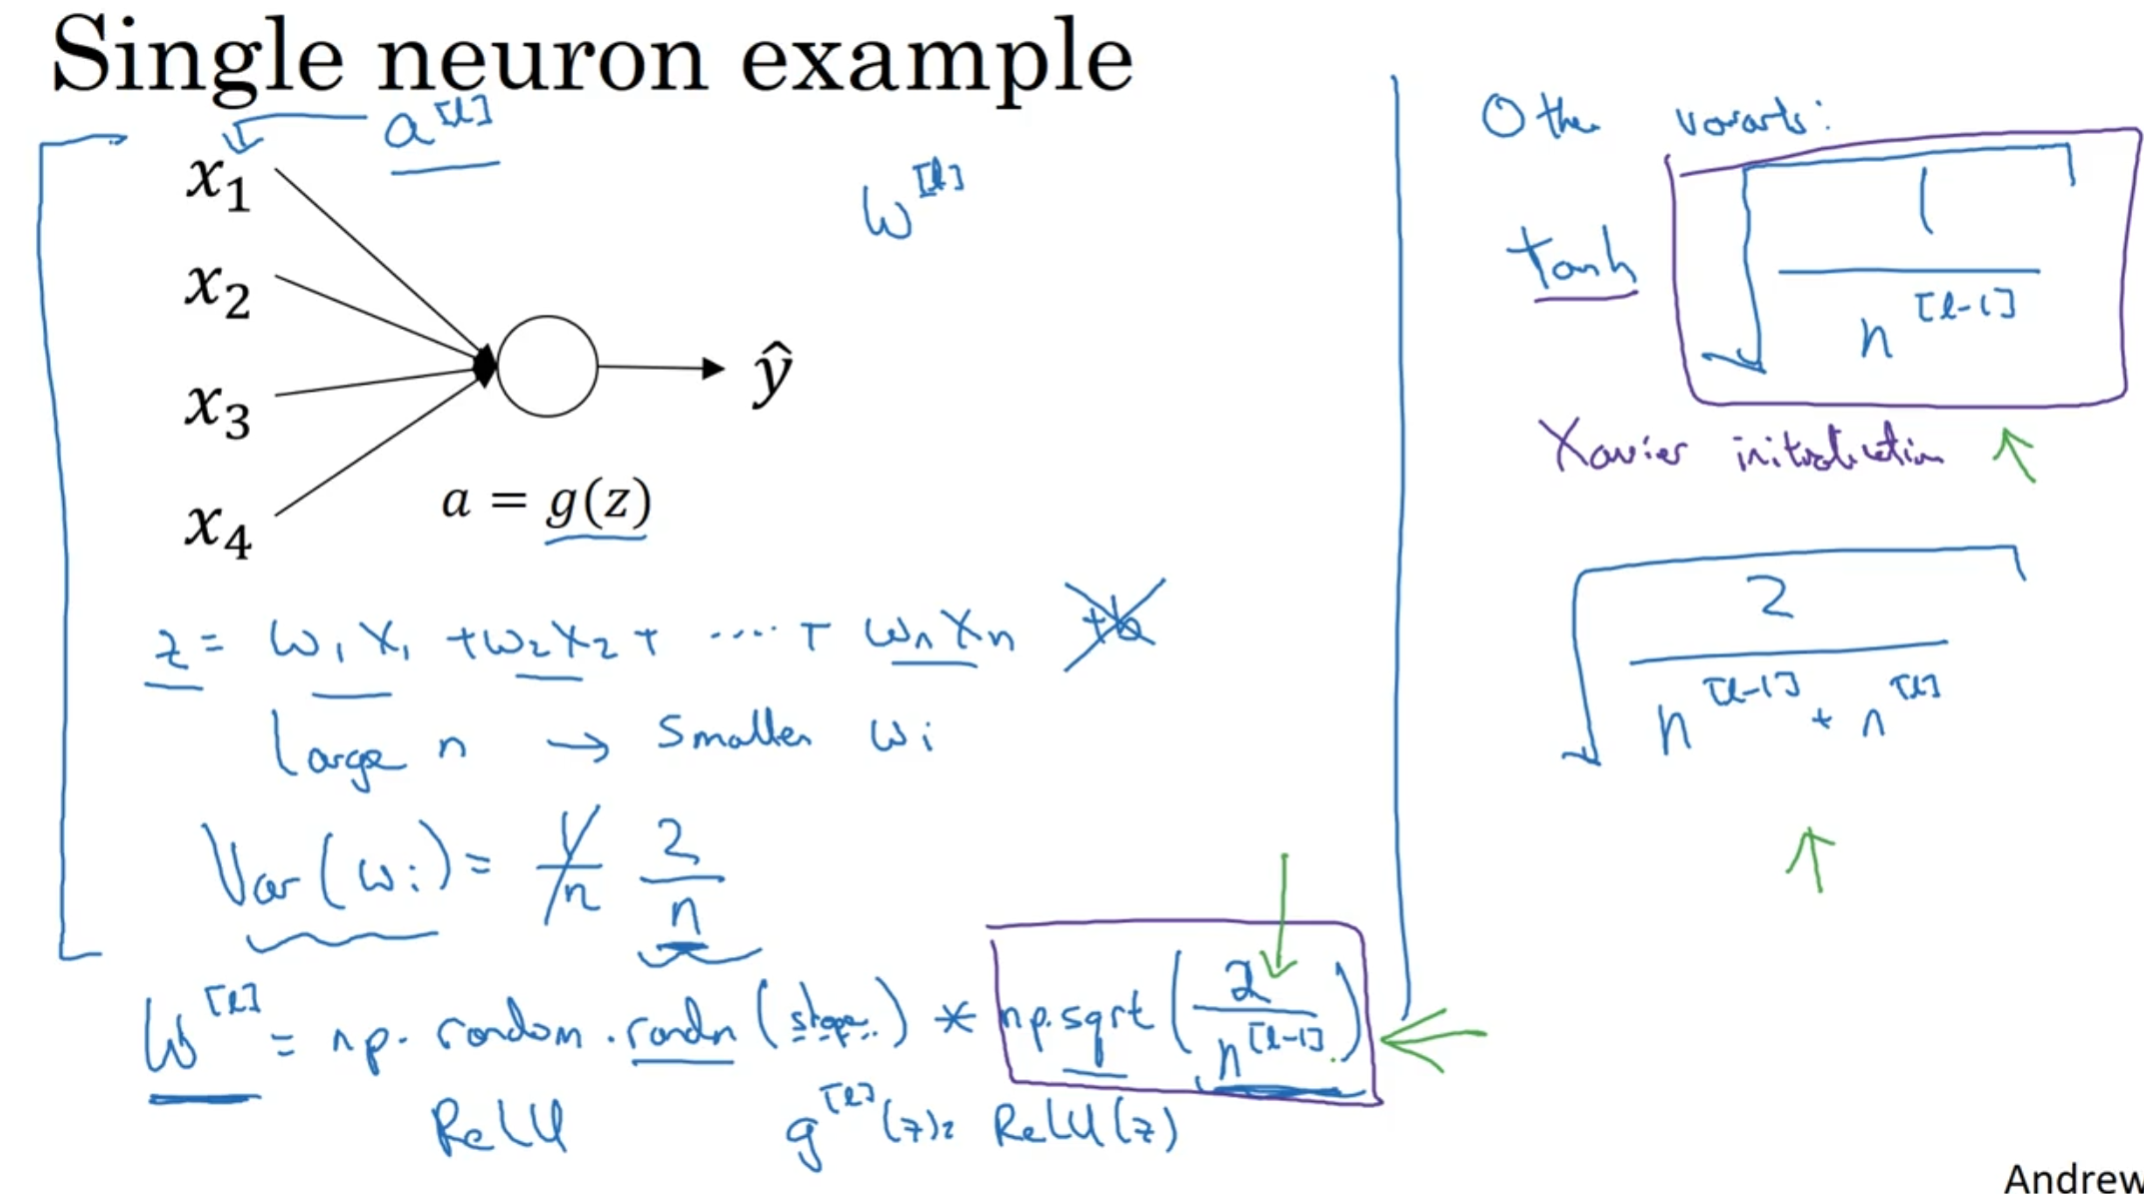 Single neuron example
a^[l]
x₁
x₂
x₃
x₄
ŷ
W^[l]
a = g(z)
z = w₁x₁ + w₂x₂ + ..... + wₙxₙ +b
Large n → Smaller wᵢ
Var(wᵢ) = 1/n 2/n
W^[l] = np.random.randn(shape) * np.sqrt(2/n^[l-1])
ReLU g^[l](z) = ReLU(z)
Other variants:
tanh √(1/n^[l-1])
Xavier initialization
√(2/(n^[l-1] + n^[l]))
Andrew